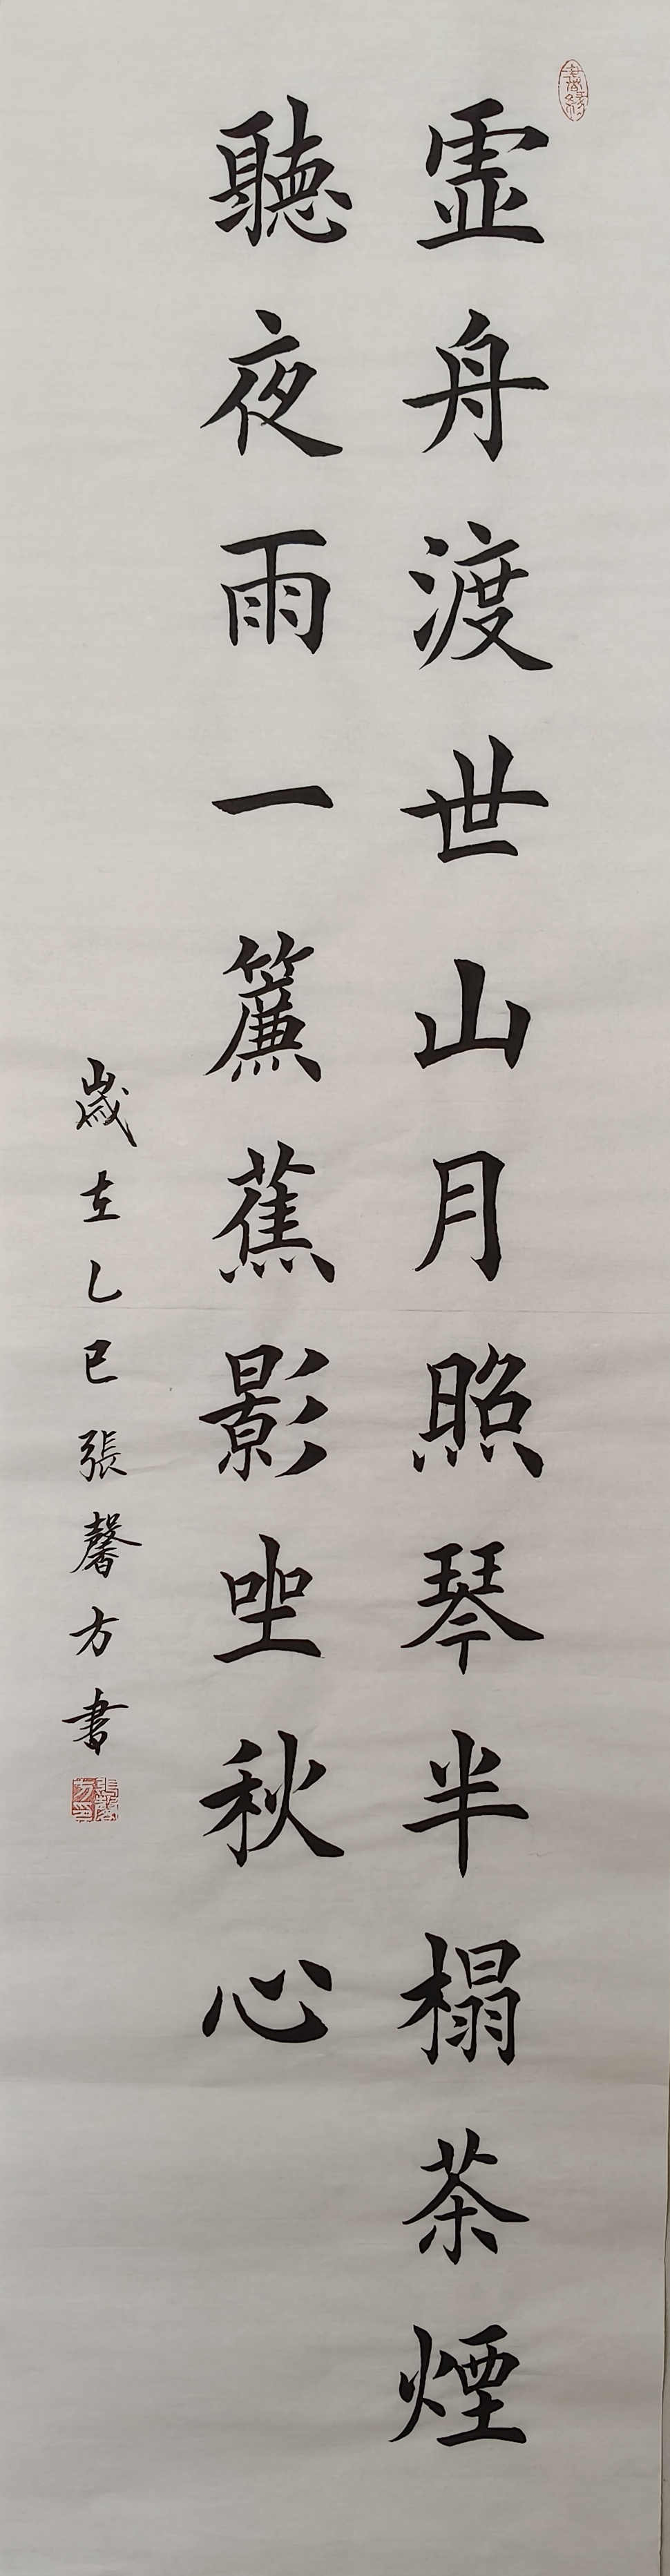 虛舟渡世山月照琴半榻茶煙
聽夜雨一簾蕉影坐秋心
歲在乙巳張馨方書
張馨方印